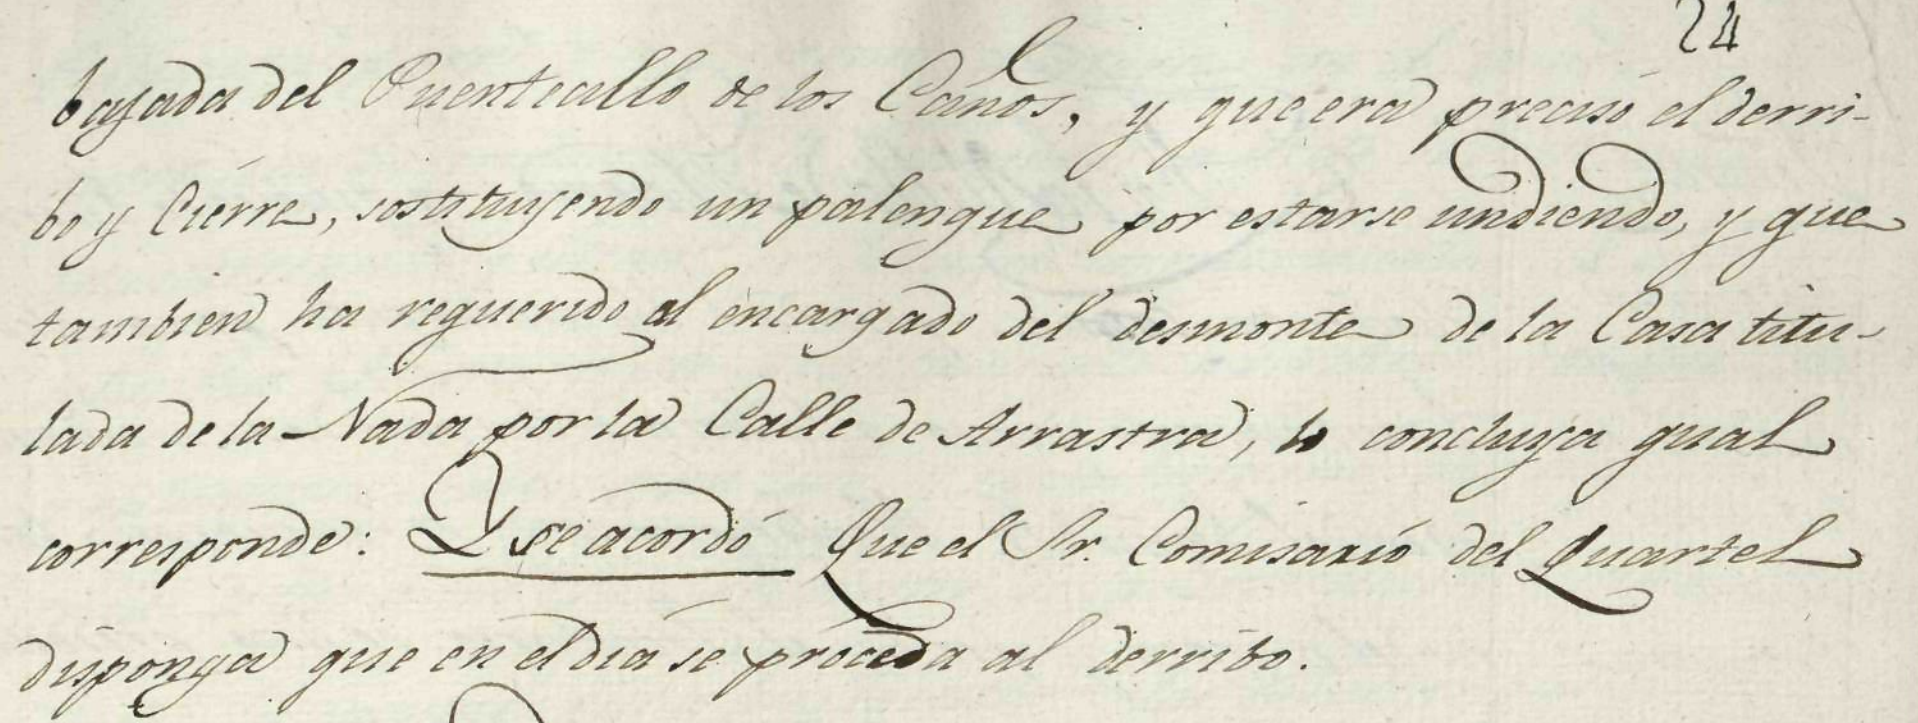 24
bajada del Puentecillo de los Caños, y que era preciso el derri-
bo y Cierre, sostituyendo un palenque por estarse undiendo, y que
tambien ha requerido al encargado del desmonte de la Casa titu-
lada de la Nada por la Calle de Arrastra, lo concluya qual
corresponde: Y se acordó Que el Sr. Comisario del Quartel
disponga que en el dia se proceda al derribo.